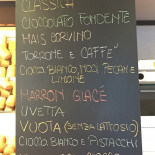 CLASSICA
CIOCCOLATO FONDENTE
MAIS CORVINO
TORRONE E CAFFE'
CIOCO BIANCO, NOCI PECAN E
LIMONE
MARRON GLACÉ
UVETTA
VUOTA (SENZA LATTOSIO)
CIOCO BIANCO E PISTACCHI